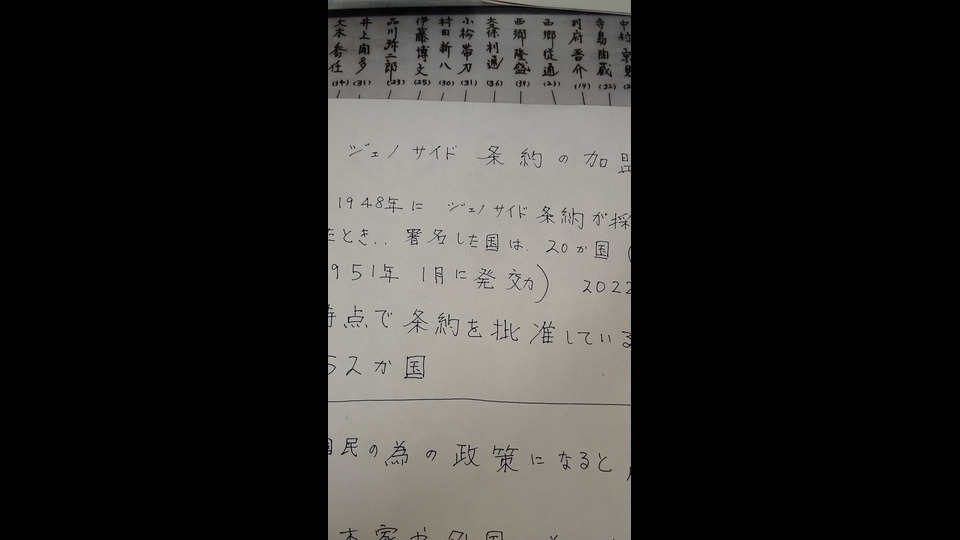 大木喬任 井上聞多 品川弥二郎 伊藤博文 村田新八 小松帯刀 大久保利通 西郷隆盛 西郷従道 別府晋介 寺島陶蔵 中村
(34) (31) (23) (25) (30) (31) (36) (39) (23) (19) (32)
ジェノサイド 条約の加盟
1948年に ジェノサイド条約が採
たとき.. 署名した国は. 20か国 (
951年 1月に発効) 2022
時点で条約を批准している
52か国
国民の為の政策になると